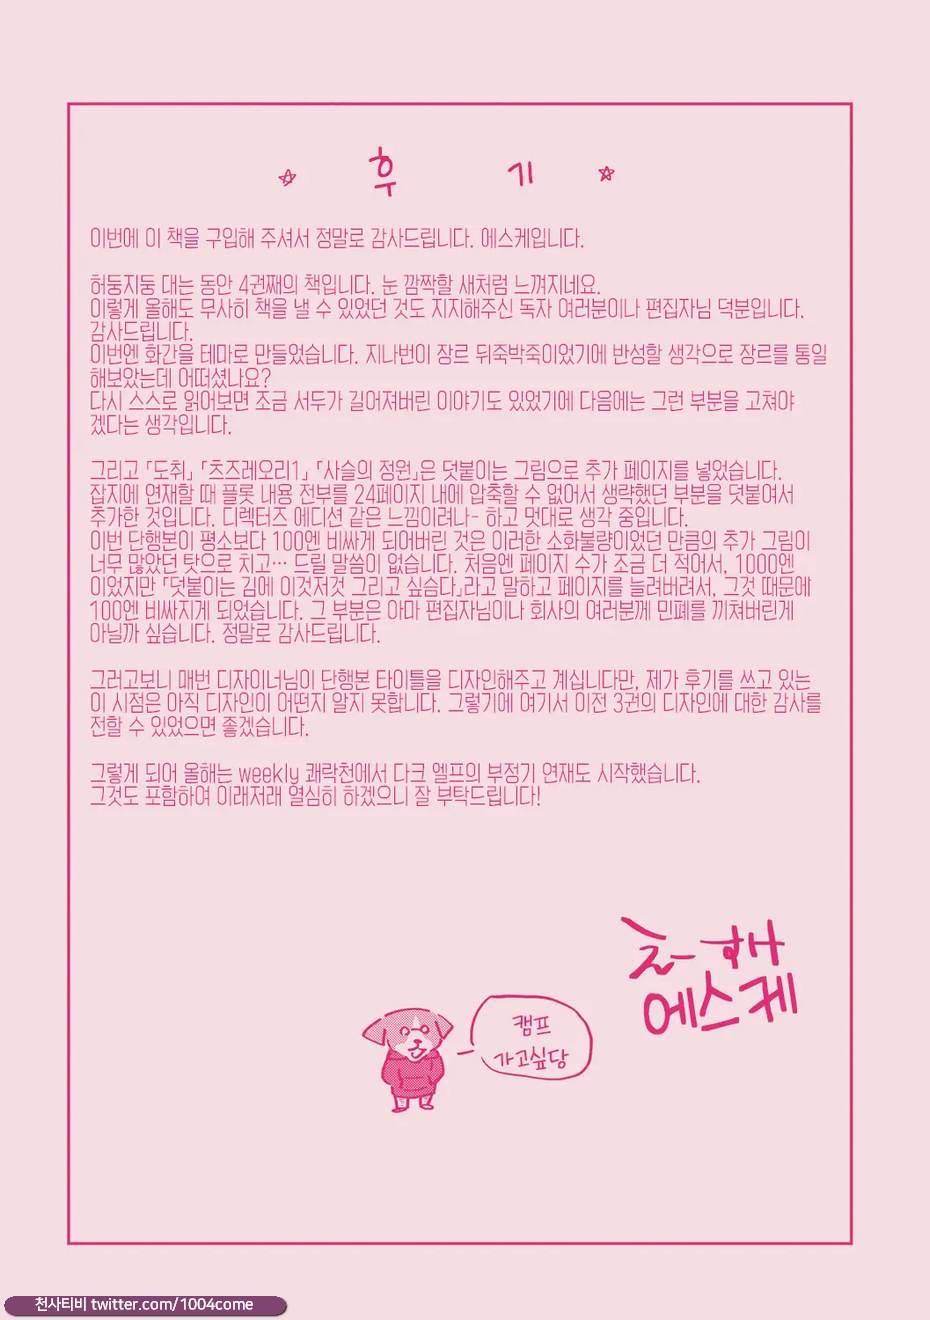 ☆ 후 기 ☆
이번에 이 책을 구입해 주셔서 정말로 감사드립니다. 에스케입니다.
허둥지둥 대는 동안 4권째의 책입니다. 눈 깜짝할 새처럼 느껴지네요.
이렇게 올해도 무사히 책을 낼 수 있었던 것도 지지해주신 독자 여러분이나 편집자님 덕분입니다.
감사드립니다.
이번엔 화간을 테마로 만들었습니다. 지나번이 장르 뒤죽박죽이었기에 반성할 생각으로 장르를 통일
해보았는데 어떠셨나요?
다시 스스로 읽어보면 조금 서두가 길어져버린 이야기도 있었기에 다음에는 그런 부분을 고쳐야
겠다는 생각입니다.
그리고 「도취」 「츠즈레오리1」 「사슬의 정원」은 덧붙이는 그림으로 추가 페이지를 넣었습니다.
잡지에 연재할 때 플롯 내용 전부를 24페이지 내에 압축할 수 없어서 생략했던 부분을 덧붙여서
추가한 것입니다. 디렉터즈 에디션 같은 느낌이려나~ 하고 멋대로 생각 중입니다.
이번 단행본이 평소보다 100엔 비싸게 되어버린 것은 이러한 소화불량이었던 만큼의 추가 그림이
너무 많았던 탓으로 치고… 드릴 말씀이 없습니다. 처음엔 페이지 수가 조금 더 적어서, 1000엔
이었지만 「덧붙이는 김에 이것저것 그리고 싶슴다」라고 말하고 페이지를 늘려버려서, 그것 때문에
100엔 비싸지게 되었습니다. 그 부분은 아마 편집자님이나 회사의 여러분께 민폐를 끼쳐버린게
아닐까 싶습니다. 정말로 감사드립니다.
그러고보니 매번 디자이너님이 단행본 타이틀을 디자인해주고 계십니다만, 제가 후기를 쓰고 있는
이 시점은 아직 디자인이 어떤지 알지 못합니다. 그렇기에 여기서 이전 3권의 디자인에 대한 감사를
전할 수 있었으면 좋겠습니다.
그렇게 되어 올해는 weekly 쾌락천에서 다크 엘프의 부정기 연재도 시작했습니다.
그것도 포함하여 이래저래 열심히 하겠으니 잘 부탁드립니다!
에스케
캠프
가고싶당
천사티비 twitter.com/1004come